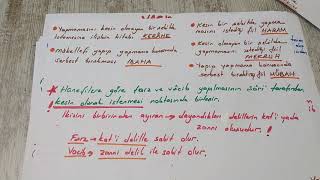 Yapmamasını kesin olmayan bir şekilde istemesine ilişkin hitabı KERAHE
mükellefi yapıp yapmama hususunda serbest bırakması İBAHA
Kesin bir şekilde yapma masını istediği fiil HARAM
Kesin olmayan bir şekilde yapmamasını istediği fiil MEKRUH
Yapıp yapmama hususunda serbest bıraktığı fiil MÜBAH
* Hanefilere göre farz ve vâcib yapılmasının şâri tarafından
kesin olarak istenmesi noktasında birleşir.
İkisini birbirinden ayıran → dayandıkları delillerin kat'i yada
zanni oluşudur.
Farz → kat'i delille sabit olur.
Vacib → zanni delil ile sabit olur.